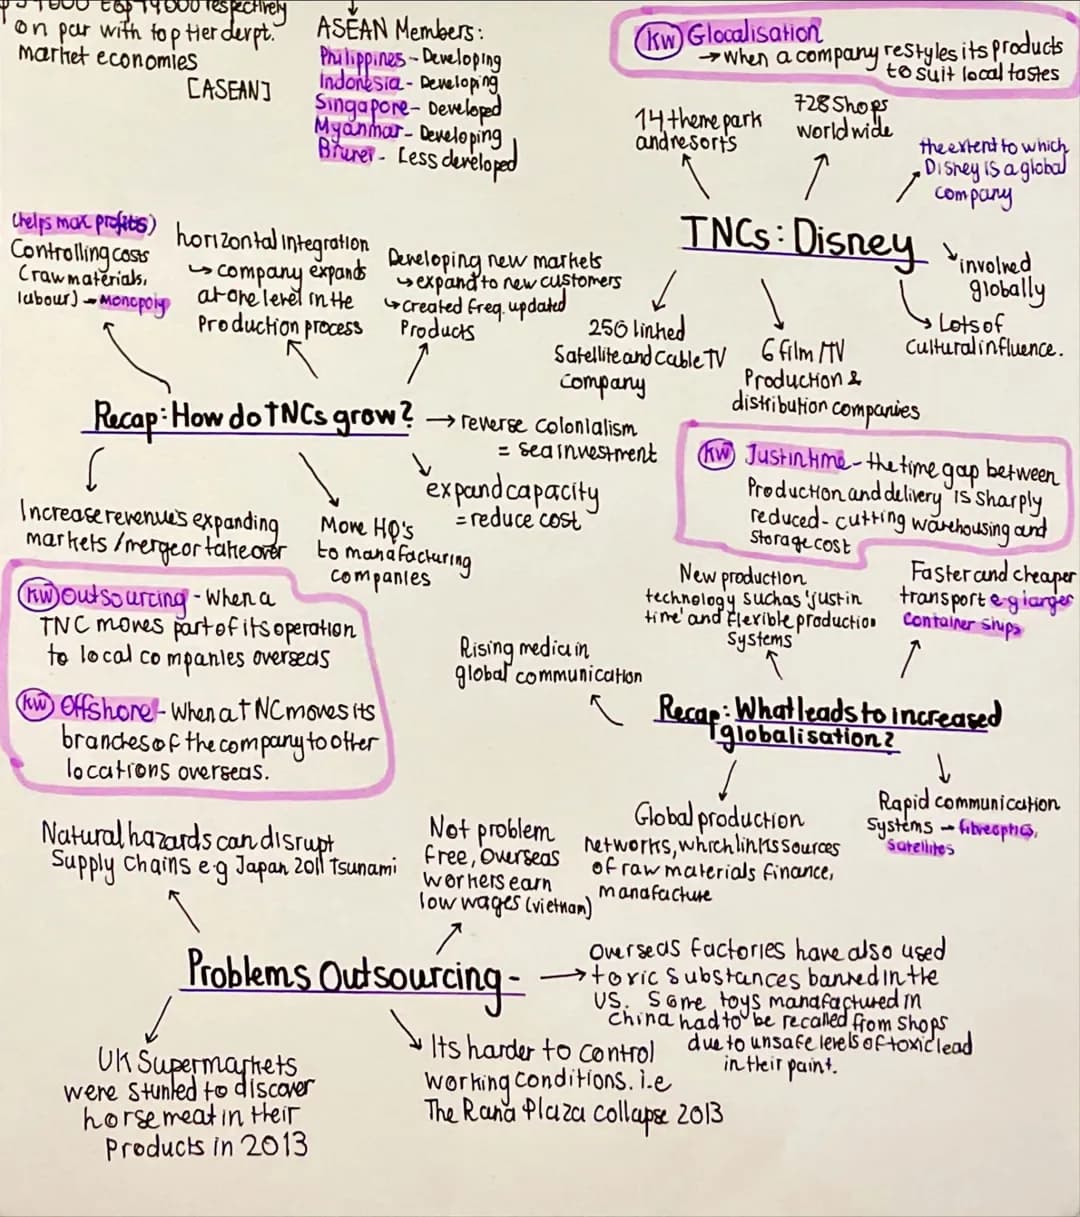 top 14000 respectively
on par with top tier devpt.
market economies
[ASEAN]
ASEAN Members:
Philippines - Developing
Indonesia - Developing
Singapore - Developed
Myanmar - Developing
Brunei - Less developed
KW Glocalisation
→ When a company restyles its products
to suit local tastes
14 theme park
and resorts
728 Shops
world wide
the extent to which
Disney is a global
company
TNCs: Disney
involved
globally
Lots of
Cultural influence.
6 film/TV
Production &
distribution companies
256 linked
Satellite and Cable TV
Company
(helps max profits)
Controlling costs
(raw materials,
labour) - Monopoly
horizontal integration
↳ company expands
at one level in the
Production process
Developing new markets
↳ expand to new customers
↳ created freq. updated
Products
Recap: How do TNCs grow?
→ reverse colonialism
= sea investment
expand capacity
= reduce cost
Increase revenue's expanding
markets / merge or takeover
More HQ's
to manafacturing
companies
KW Just in time - the time gap between
Production and delivery is sharply
reduced - cutting warehousing and
Storage cost
KW Outsourcing - When a
TNC moves part of its operation
to local companies overseas
KW Offshore - When a TNC moves its
branches of the company to other
locations overseas.
New production
technology such as 'just in
time' and flexible production
Systems
Faster and cheaper
transport e.g larger
Container ships
Rising media in
global communication
Recap: What leads to increased
globalisation?
Global production
networks, which links sources
of raw materials finance,
manafacture
Rapid communication
Systems - fibreoptics,
Satellites
Natural hazards can disrupt
Supply Chains e.g Japan 2011 Tsunami
Not problem
free, Overseas
workers earn
low wages (vietnam)
Problems Outsourcing -
→ Overseas factories have also used
toxic substances banned in the
US. Some toys manafactured in
China had to be recalled from shops
due to unsafe levels of toxic lead
in their paint.
UK Supermarkets
were Stunted to discover
horse meat in their
Products in 2013
Its harder to control
working conditions. i.e
The Rana Plaza Collapse 2013